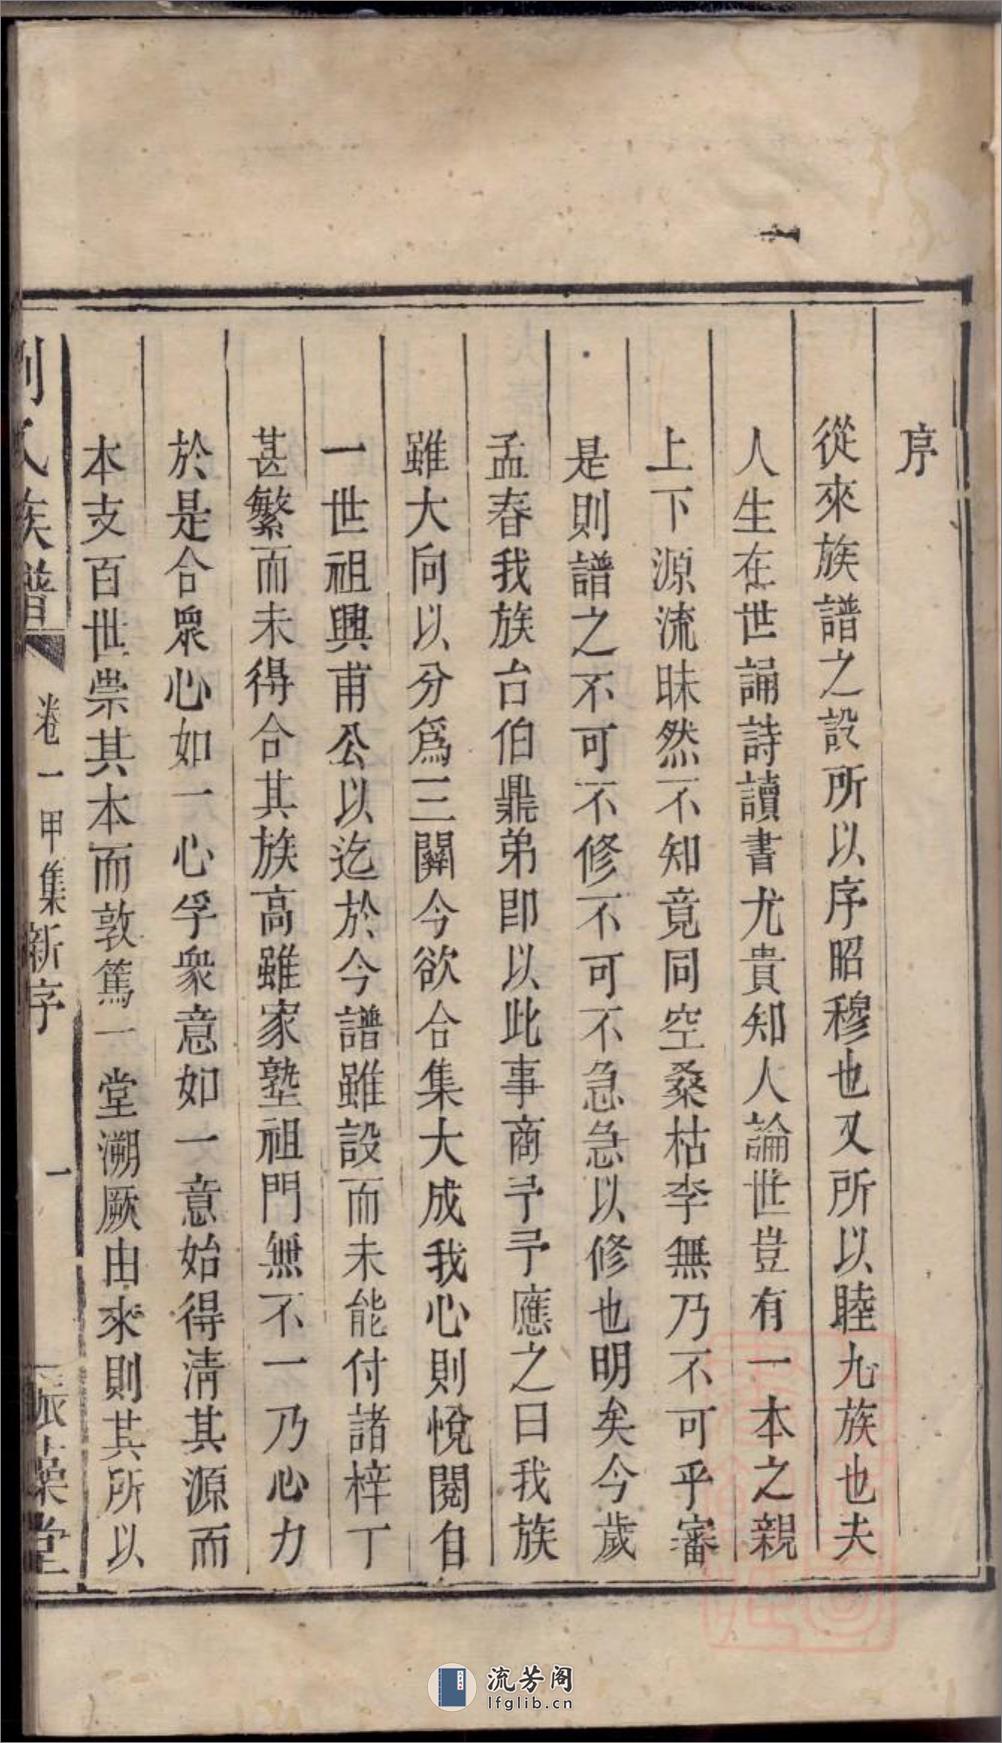 序
從來族譜之設所以序昭穆也又所以睦九族也夫
人生在世誦詩讀書尤貴知人論世豈有一本之親
上下源流昧然不知竟同空桑枯李無乃不可乎審
是則譜之不可不修不可不急急以修也明矣今歲
孟春我族台伯鼎弟即以此事商予予應之曰我族
雖大向以分爲三關今欲合集大成我心則悅閱自
一世祖興甫公以迄於今譜雖設而未能付諸梓丁
甚繁而未得合其族高雖家塾祖門無不一乃心力
於是合眾心如一心孚衆意如一意始得清其源而
本支百世祟其本而敦篤一堂溯厥由來則其所以
氏族譜 卷一甲集新序 一 堂
流芳阁
lfglib.cn